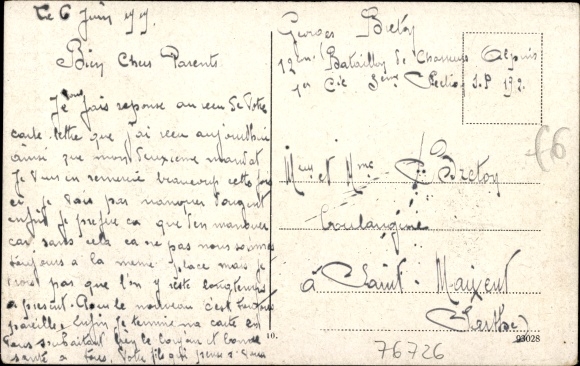 Le 6 Juin 1919
Bien Chers Parents
Je vous fais reponse au recu de votre
carte lettre que j'ai recu aujourdhui
ainsi que mon deuxieme mandat
Je vous en remercie beaucoup cette fois
ci je vais pas manquer d'argent
enfin je prefere ca que d'en manquer
car sans cela ca ne pas nous sommes
toujours a la meme place mais je
crois pas que l'on y reste longtemps
a present. Pour le nouveau c'est toujours
pareille. Enfin je termine ma carte en
vous souhaitant bien le bonjour et bonne
sante a tous. Votre fils qui pense a vous
Georges Breton
12eme Bataillon de Chasseurs Alpins
1er Cie 3eme Section S.P 192.
Meur et Mme Breton
boulangerie
à Saint-Maixent
(Sarthe)
£6
10.
93028
76726